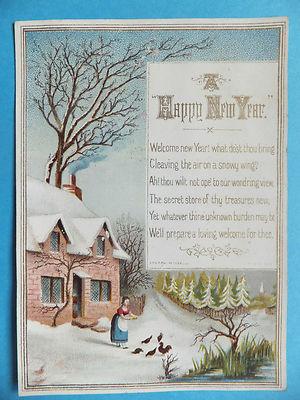 A
"Happy New Year."
Welcome new Year! what dost thou bring
Cleaving the air on a snowy wing?
Ah! thou wilt not ope' to our wond'ring view,
The secret store of thy treasures new,
Yet whatever thine unknown burden may be
We'll prepare a loving welcome for thee.